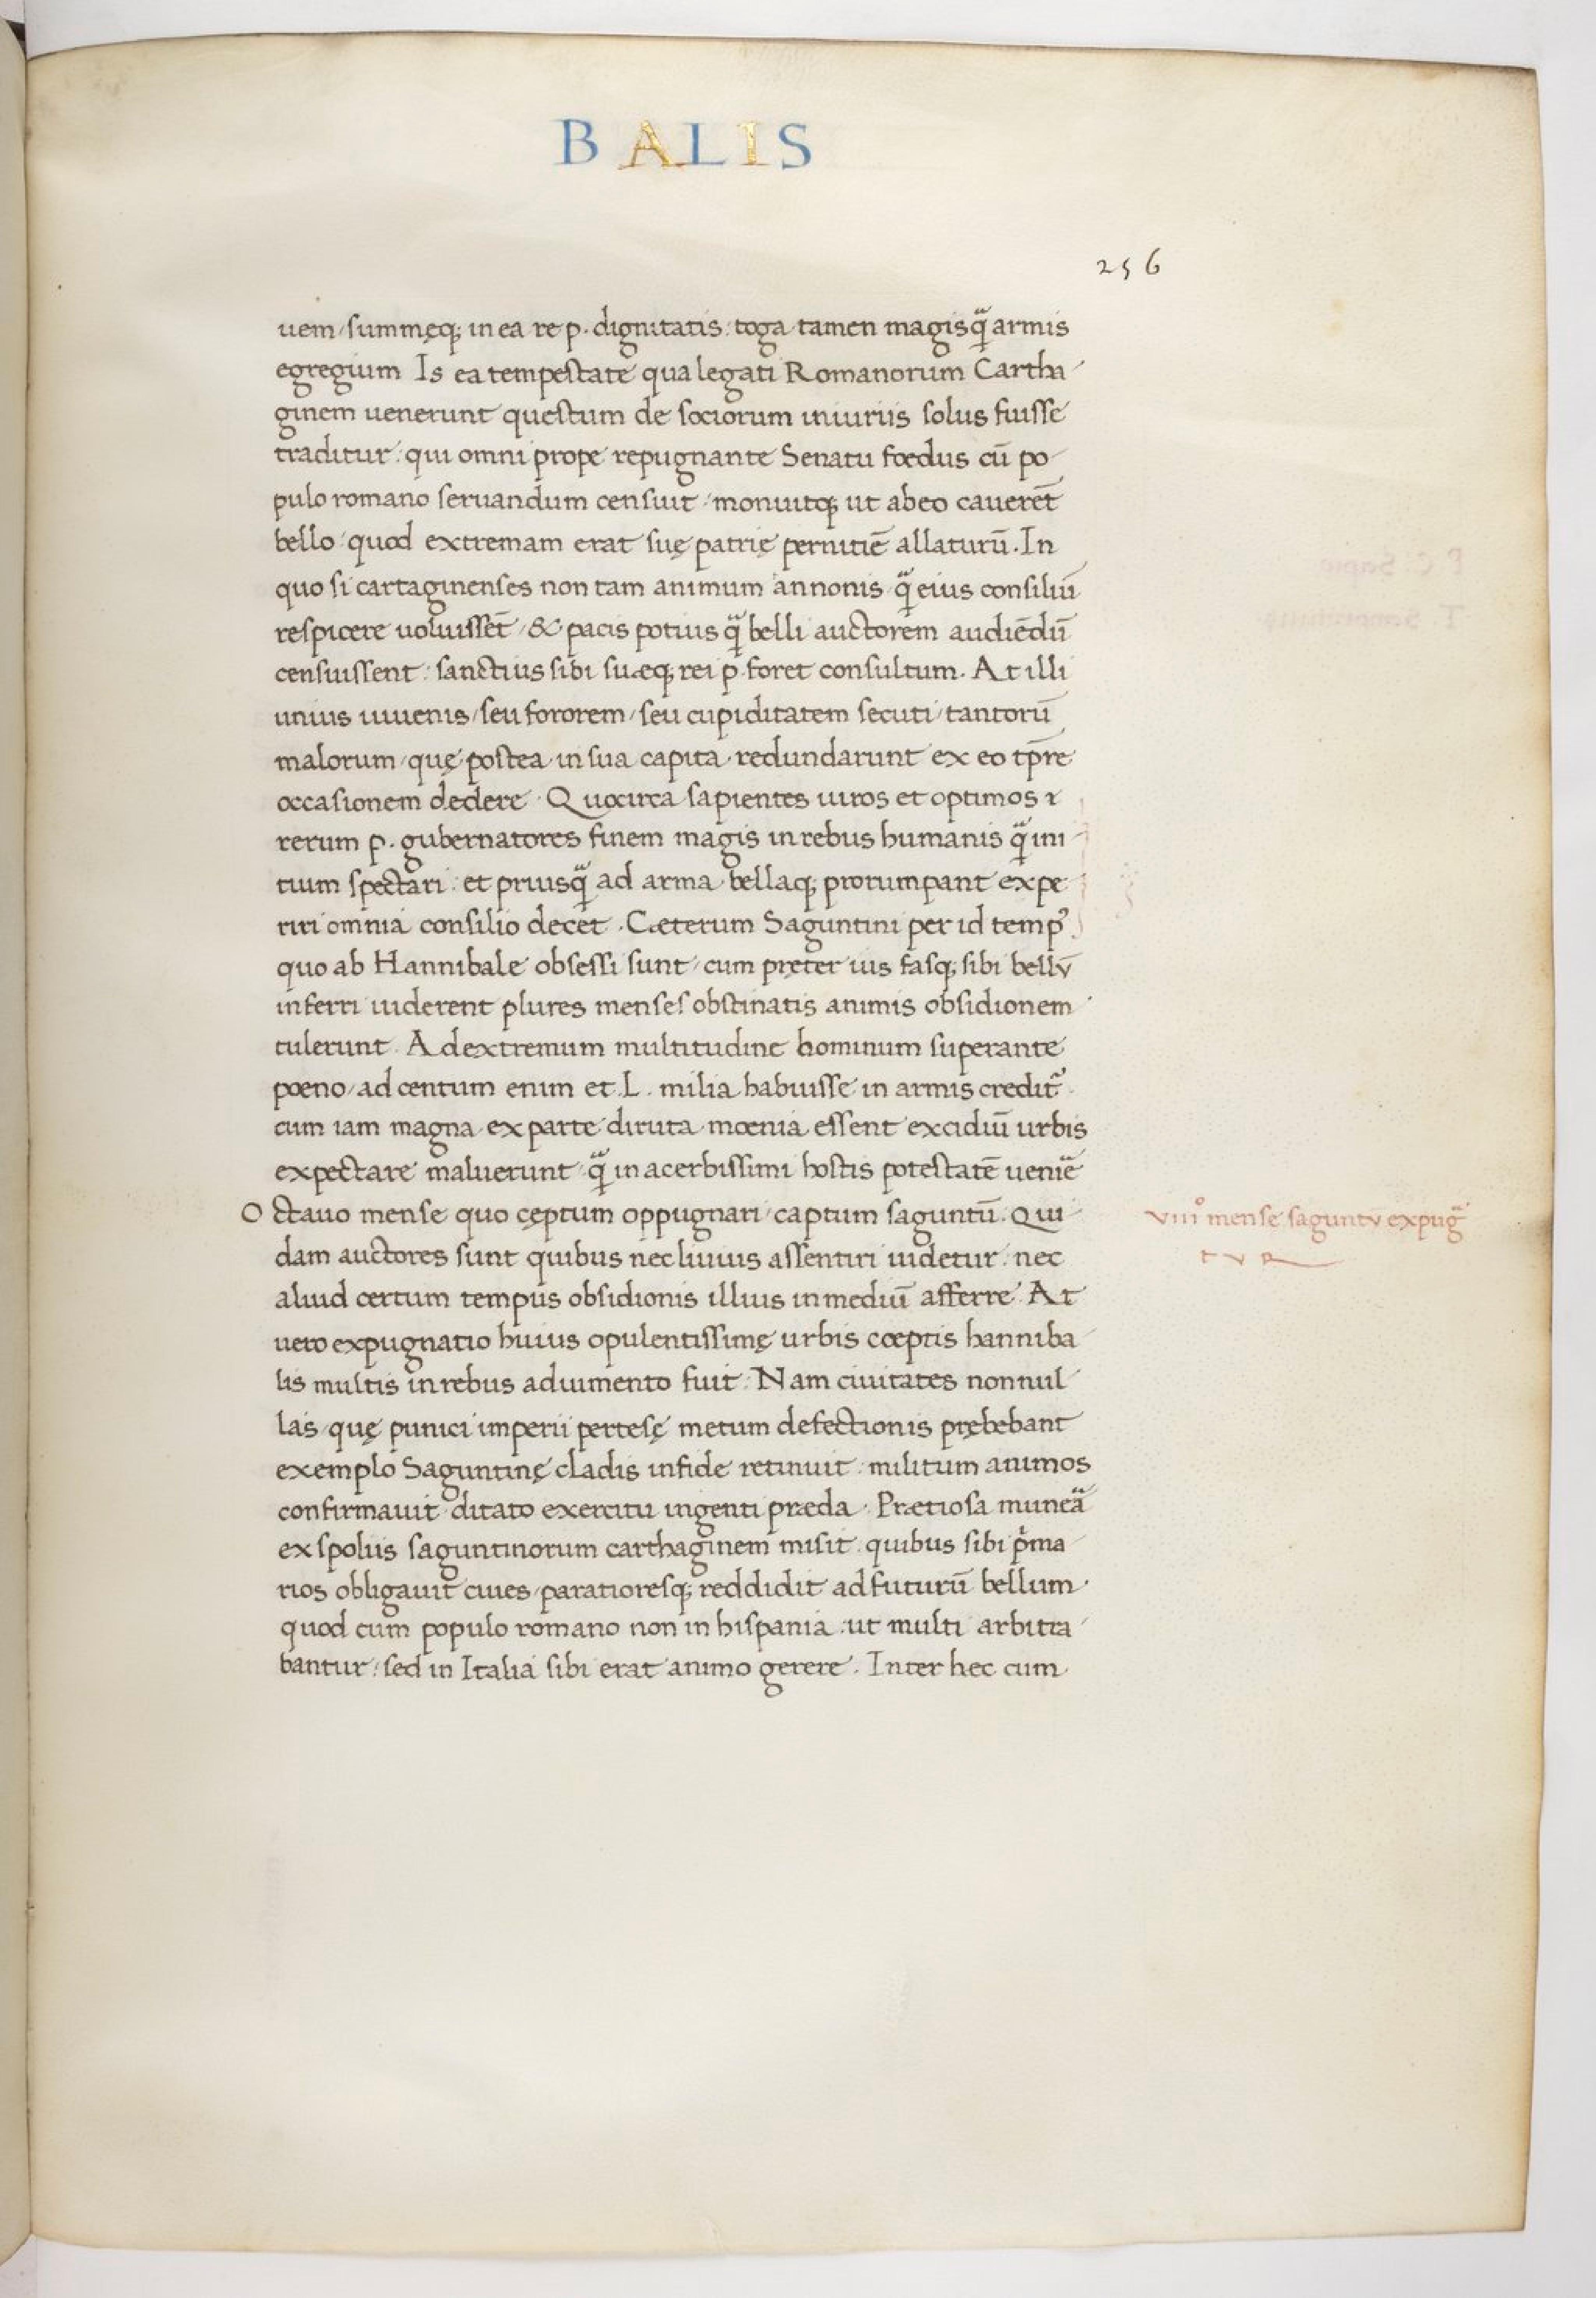 BALIS
256
uem / summęq; in ea re p. dignitatis : toga tamen magis q̃ armis
egregium Is ea tempestate qua legati Romanorum Cartha-
ginem uenerunt questum de sociorum iniuriis solus fuisse
traditur : qui omni prope repugnante Senatu foedus cū po-
pulo romano seruandum censuit / monuitq; ut ab eo cauerēt
bello quod extremam erat suę patrię pernitiē allaturū. In
quo si cartaginenses non tam animum annonis q̃ eius consiliū
respicere uoluissēt / & pacis potius q̃ belli auctorem audiēdū
censuissent : sanctius sibi suæq; rei p. foret consultum. At illi
unius iuuenis / seu fororem / seu cupiditatem secuti / tantorū
malorum / quę postea in sua capita redundarunt ex eo tp̄re
occasionem dedere. Quocirca sapientes uiros et optimos
rerum p. gubernatores finem magis in rebus humanis q̃ ini-
tium spectari : et priusq̃ ad arma bellaq; prorumpant expe
riri omnia consilio decet. Cæterum Saguntini per id temp⁹
quo ab Hannibale obsessi sunt / cum pręter ius fasq; sibi bellv̄
inferri uiderent plures menses obstinatis animis obsidionem
tulerunt. Ad extremum multitudine hominum superante
poeno / ad centum enim et .L. milia habuisse in armis credit᷑
cum iam magna ex parte diruta moenia essent excidiū urbis
expectare maluerunt q̃ in acerbissimi hostis potestatē ueniē
Octauo mense quo cęptum oppugnari / captum saguntū. Qui-
dam auctores sunt quibus nec liuius assentiri uidetur : nec
aliud certum tempus obsidionis illius in mediū afferre. At
uero expugnatio huius opulentissimę urbis coeptis hanniba-
lis multis in rebus adiumento fuit : Nam ciuitates nonnul-
las / quę punici imperii pertesę metum defectionis prębebant
exemplo Saguntinę cladis in fide retinuit : militum animos
confirmauit ditato exercitu ingenti præda. Prætiosa muneā
ex spoliis saguntinorum carthaginem misit : quibus sibi p̍ma-
rios obligauit ciues / paratioresq; reddidit ad futurū bellum
quod cum populo romano non in hispania ut multi arbitra-
bantur : sed in Italia sibi erat animo gerere. Inter hec cum
viii° mense saguntv̄ expugā
tvR